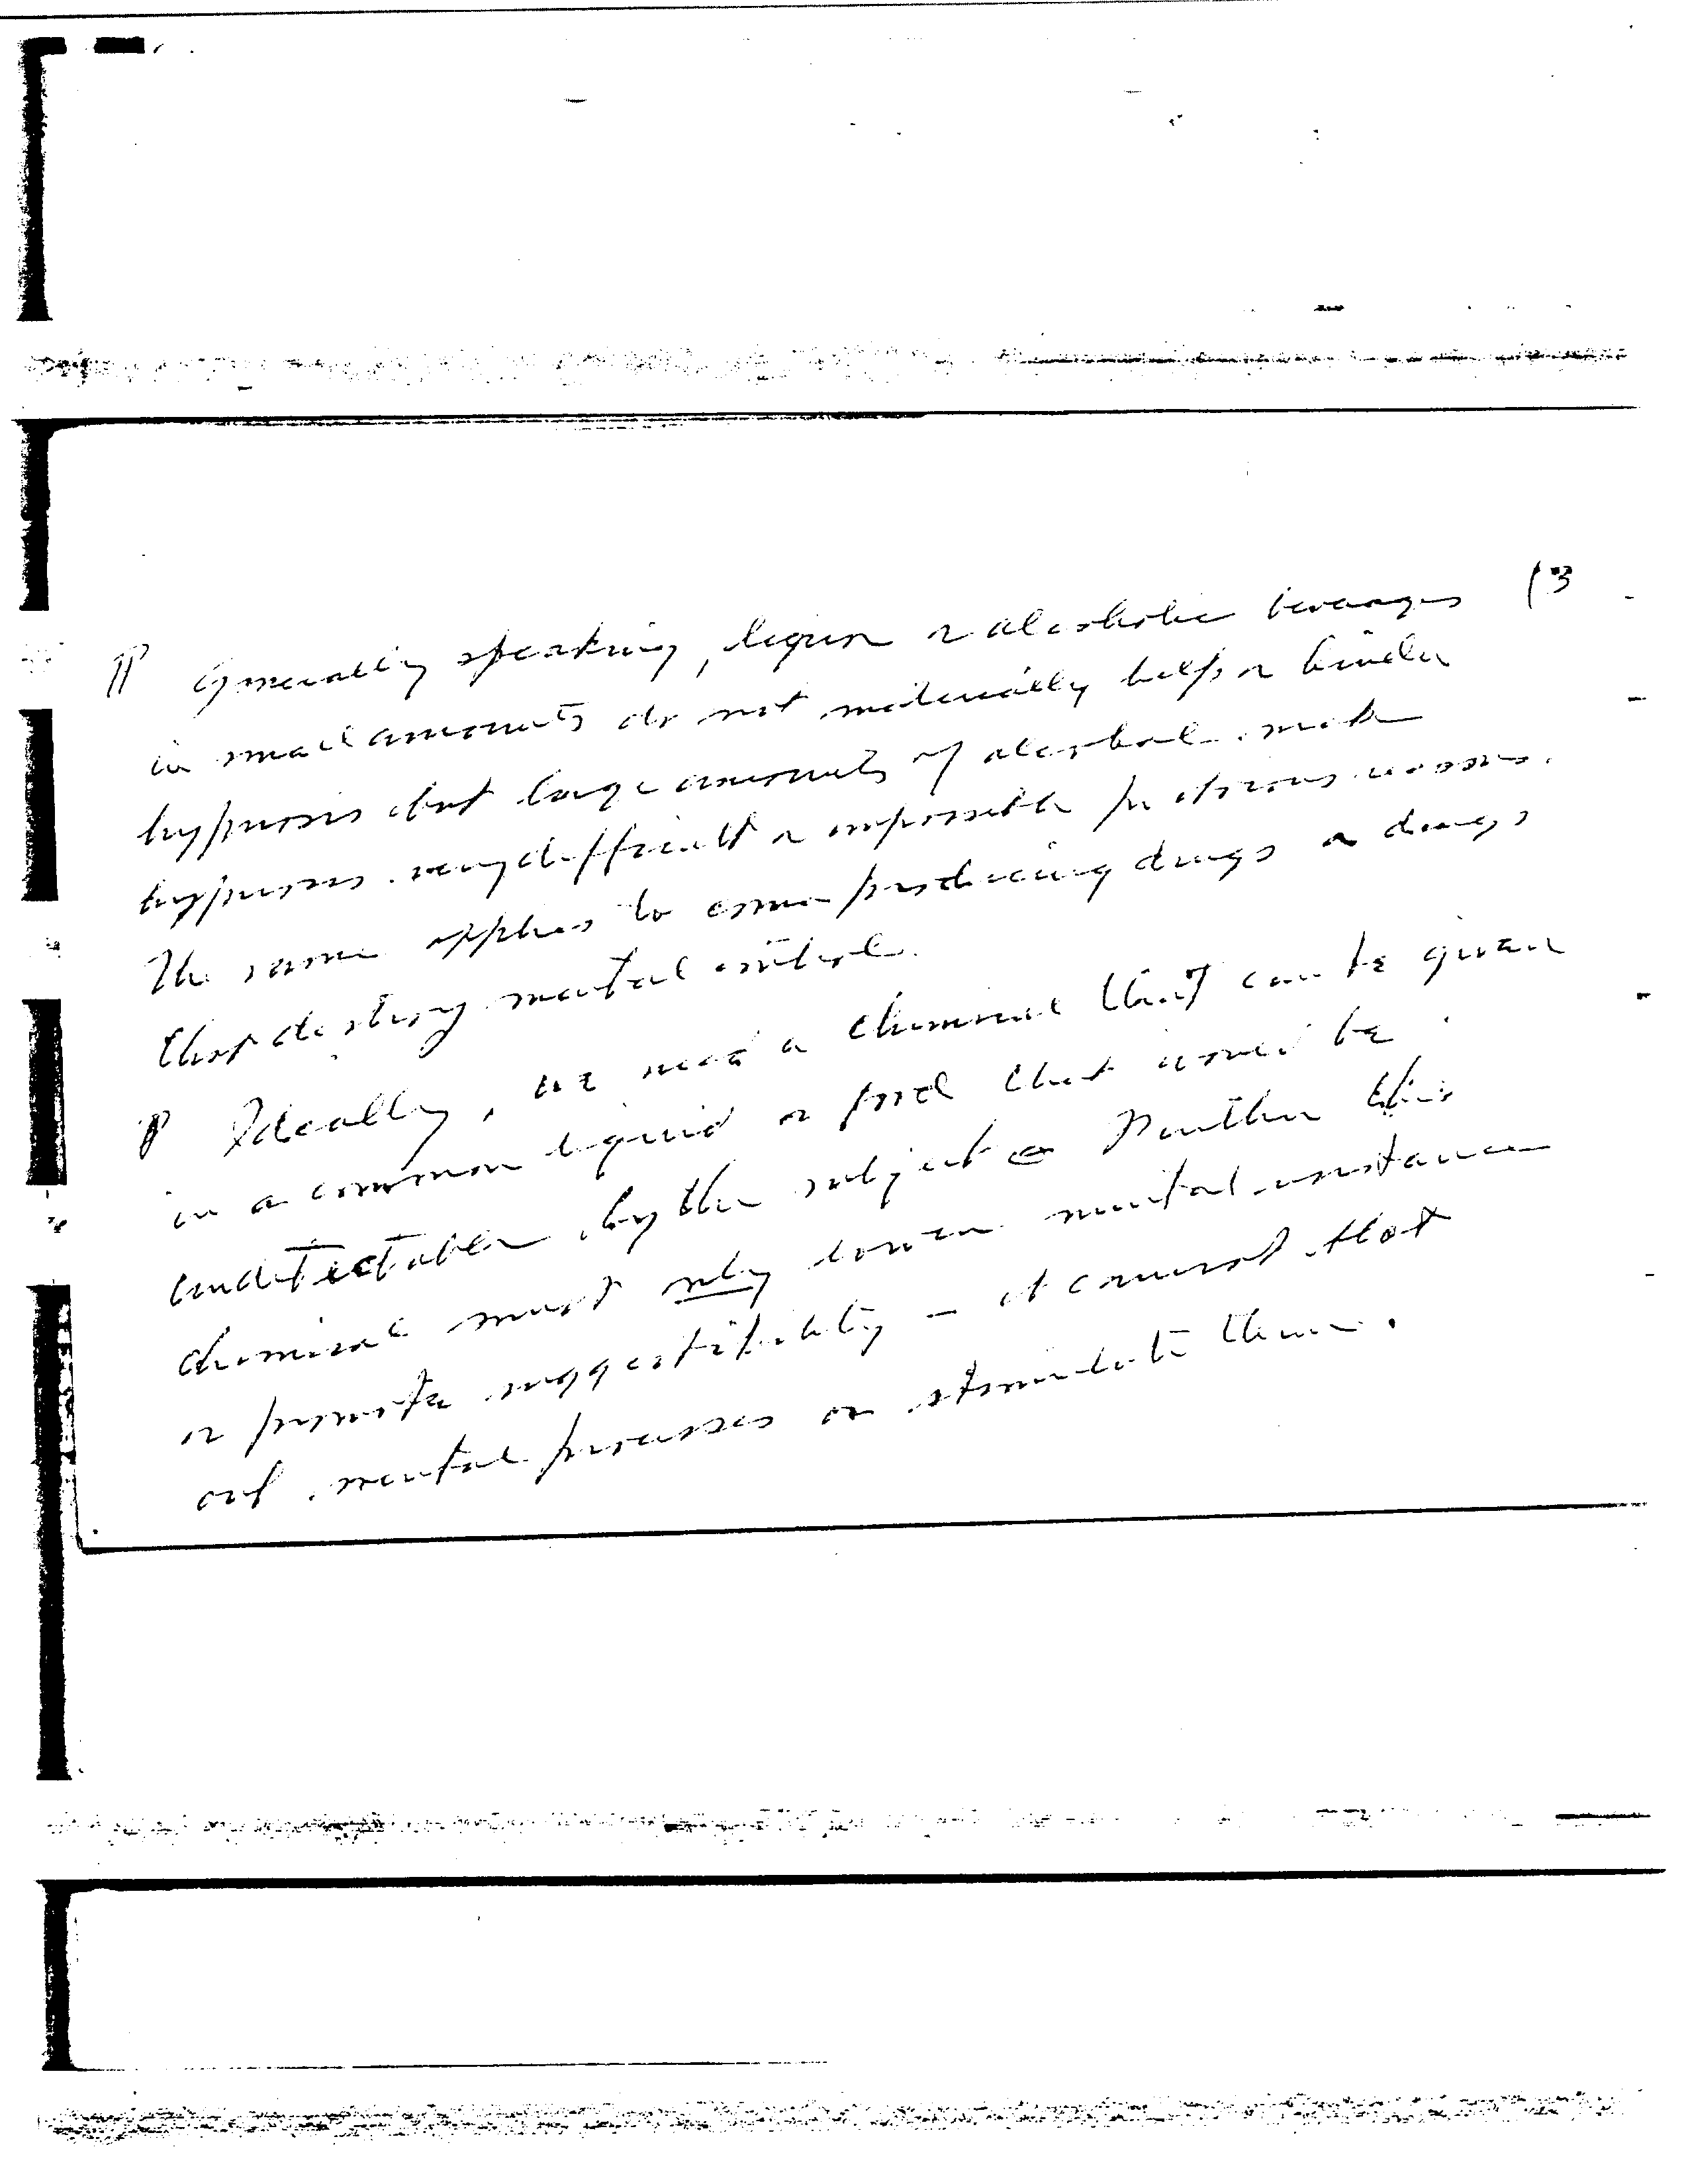 (3
¶ Generally speaking, liquor or alcoholic beverages
in small amounts do not materially help or hinder
hypnosis but large amounts of alcohol make
hypnosis very difficult or impossible for obvious reasons.
The same applies to coma producing drugs or drugs
that destroy mental control.
¶ Ideally, we need a chemical that can be given
in a common liquid or food that would be
undetectable by the subject. Further this
chemical must only lower mental resistance
or promote suggestibility - it cannot blot
out mental processes or stimulate them.